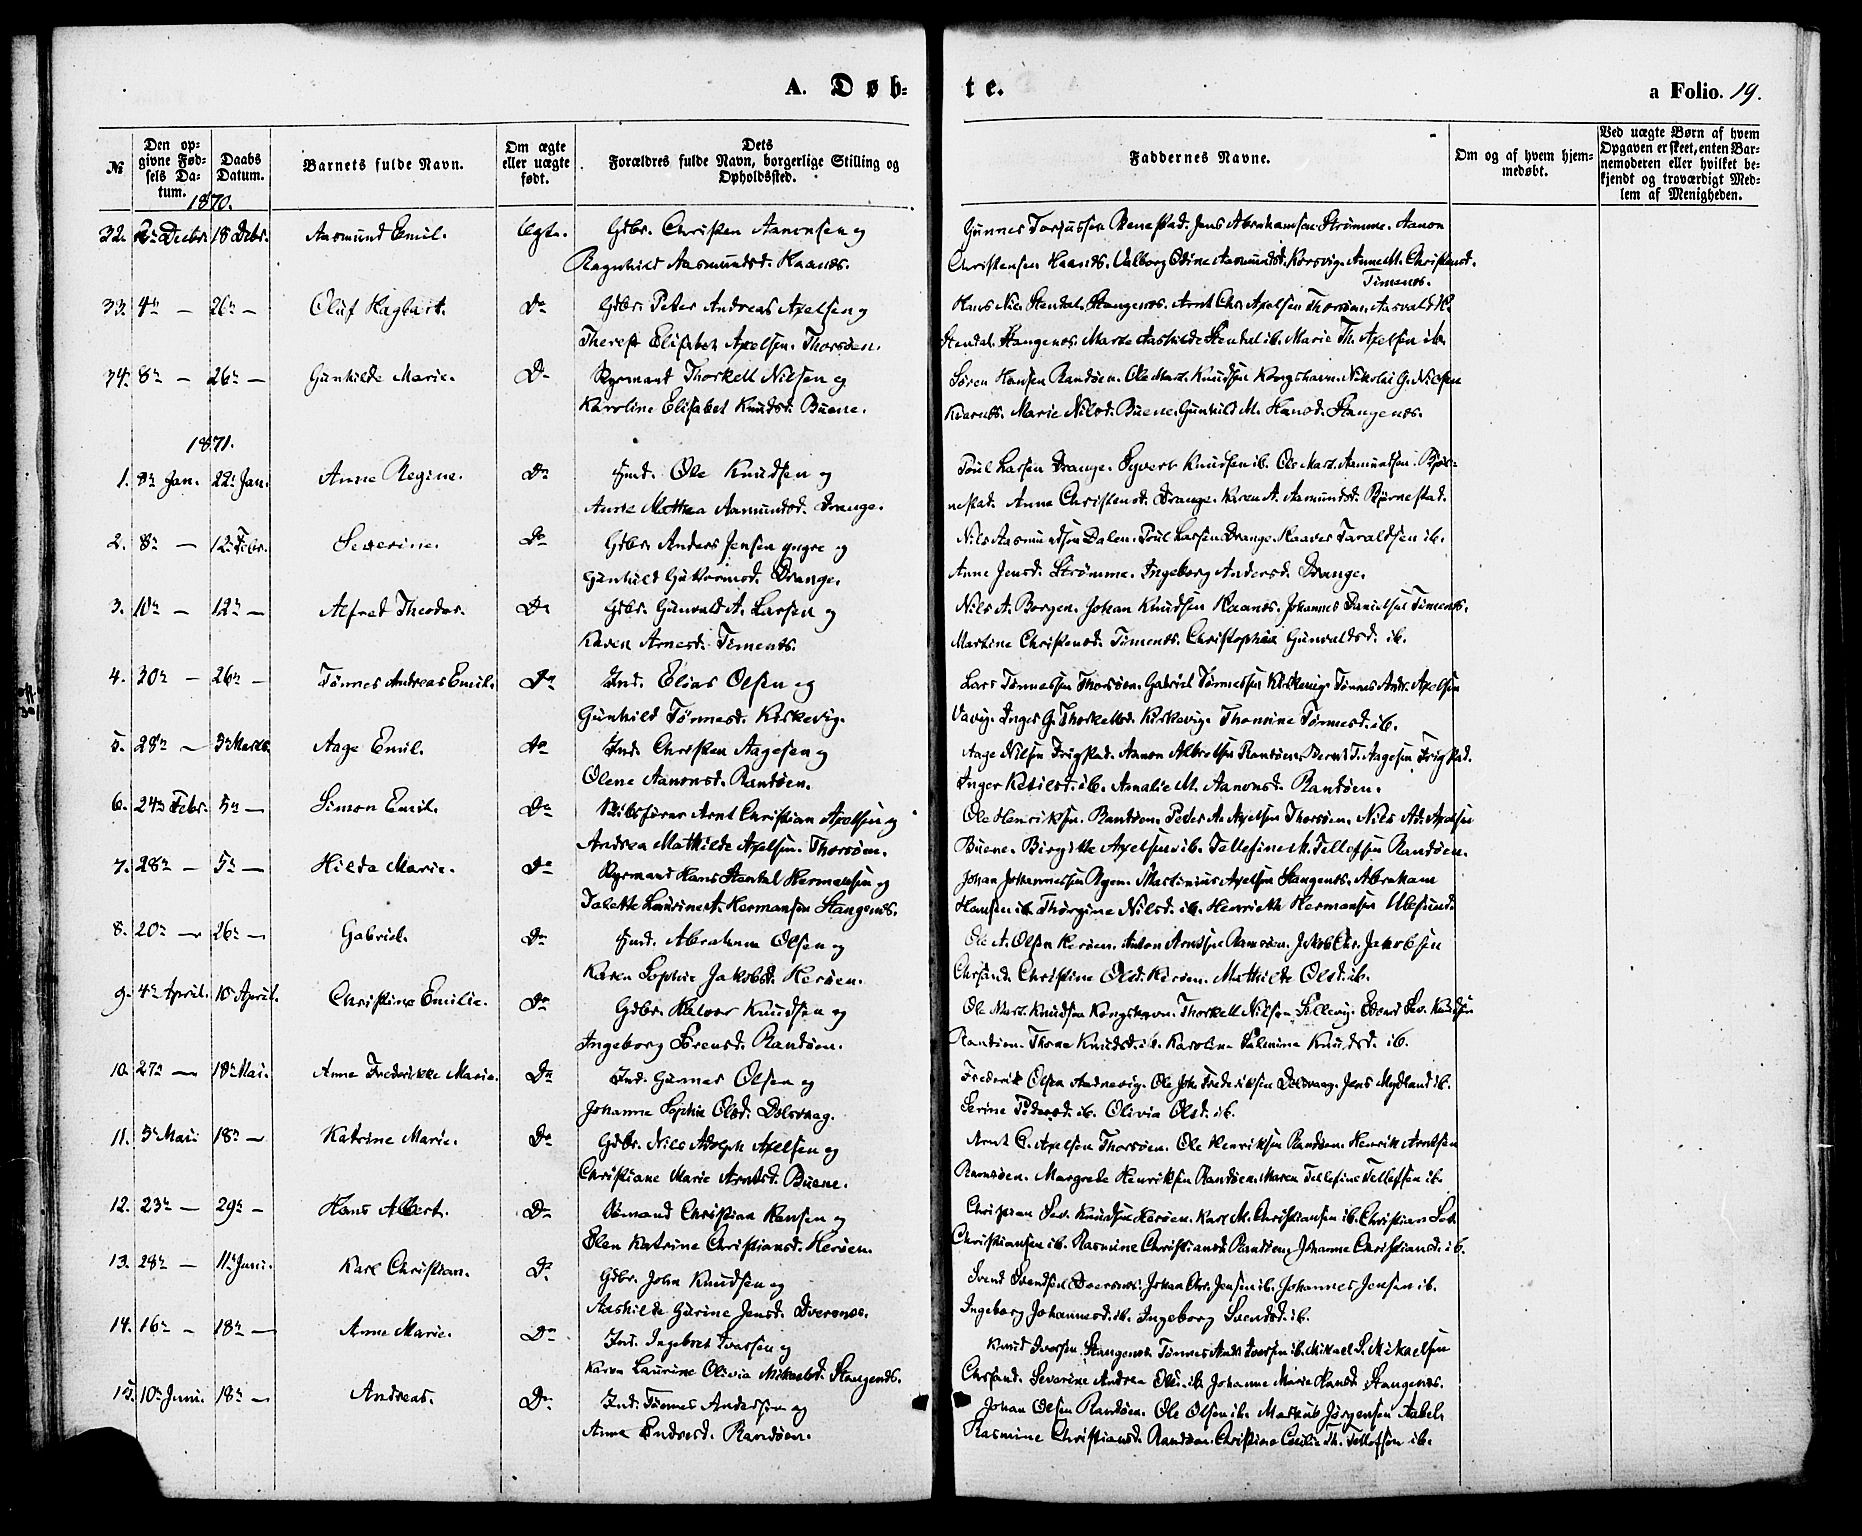 A. Døb-
te.
a Folio. 19.
№
Den op-
givne Fød-
sels Da-
tum.
Daabs
Datum.
Barnets fulde Navn.
Om ægte
eller uægte
født.
Dets
Forældres fulde Navn, borgerlige Stilling og
Opholdssted.
Faddernes Navne.
Om og af hvem hjem-
medøbt.
Ved uægte Børn af hvem
Opgaven er skeet, enten Bar-
nemoderen eller hvilket be-
kjendt og troværdigt Med-
lem af Menigheden.
1870.
32. Decbr. 18 Decbr. Aasmund Emil. Ægte. Gdbr. Christen Aanonsen og
Ragnhild Aasmundsd. Haanes.
Gunnes Torjussen Benestad. Jens Abrahamsen Strømme. Aanon
Christensen Haanes. Valborg Odine Aasmundsd. Korsvig. Anne M. Christensd.
Timenes.
33. 4de — 26de — Oluf Hagbart. Do Gdbr. Peter Andreas Axelsen og
Therese Elisabet Axelsen. Thorsøen.
Hans Nic. Stendal. Stangenes. Arnt Chr. Axelsen Thorsøen. Aasvald H.
Stendal. Stangenes. Marte Aashilde Stendal ib. Marie Th. Axelsen ib.
34. 8de — 26de — Gunhilde Marie. Do Thorkell Nilsen og
Karoline Elisabet Knudsd. Buene.
Søren Hansen Randøen. Ole Mart. Knudsen Kongshavn. Nikolai G. Nielsen
Kvernes. Marie Nilsd. Buene. Gunhild M. Hansd. Stangenes.
1871.
1. 8de Jan. 22de Jan. Anne Regine. Do Ole Knudsen og
Anne Mathea Aamundsd. Drange.
Poul Larsen Drange. Syvert Knudsen ib. Ole Mart. Aamundsen Bjør-
nestad. Anne Christensd. Drange. Karen A. Aamundsd. Bjørnestad.
2. 8de — 12te Febr. Severine. Do Gdbr. Anders Jensen yngre og
Gunhild Guttormsd. Drange.
Nils Aasmundsen Dalen. Poul Larsen Drange. Haaver Taraldsen ib.
Anne Jensd. Strømme. Ingeborg Andersd. Drange.
3. 10de — 12te — Alfred Theodor. Do Gdbr. Gunvald A. Larsen og
Karen Arnesd. Timenes.
Nils A. Borgen. Johan Knudsen Haanes. Johannes Danielsen Timenes.
Martine Christensd. Timenes. Christophine Gunvaldsd. ib.
4. 30te — 26de — Tønnes Andreas Emil. Do Ind. Elias Olsen og
Gunhild Tønnesd. Kirkevig.
Lars Tønnessen Thorsøen. Gabriel Tønnessen Kirkevig. Tønnes Andr. Axelsen
Vavig. Inger G. Thorkellsd. Kirkevig. Thomine Tønnesd. ib.
5. 28de — 5te Marts. Aage Emil. Do Ind. Christen Aagesen og
Olene Aanonsd. Randøen.
Aage Nilsen Frigstad. Aanon Albretsen Randøen. Bernt T. Aagesen Frigstad.
Inger Ketilsd. ib. Amalie M. Aanonsd. Randøen.
6. 24de Febr. 5te — Simon Emil. Do Skibsfører Arnt Christian Axelsen og
Andrea Mathilde Axelsen. Thorsøen.
Ole Henriksen. Randøen. Peder A. Axelsen Thorsøen. Nils Ad. Axelsen
Buene. Birgitte Axelsen ib. Tellefine M. Tellefsen Randøen.
7. 28de — 5te — Hilda Marie. Do Hans Stendal Hermansen og
Talette Laurine A. Hermansen Stangenes.
Johan Johannessen Ryen. Martinius Axelsen Stangenes. Abraham
Hansen ib. Thorgine Nilsd. ib. Henriette Hermansen Ulesund.
8. 20de — 26de — Gabriel. Do Abraham Olsen og
Karen Sophie Jakobsd. Herøen.
Ole A. Olsen Herøen. Anton Arntsen Ramsøen. Jakob Chr. Jakobsen
Chrsand. Christine Olsd. Herøen. Mathilde Olsd. ib.
9. 4de April. 10 April. Christine Emilie. Do Gdbr. Halvor Knudsen og
Ingeborg Sørensd. Randøen.
Ole Mart. Knudsen Kongshavn. Thorkell Nilsen Sillevig. Edvard Sev. Knudsen
Randøen. Thone Knudsd. ib. Karoline Palmine Knudsd. ib.
10. 27de — 18de Mai. Anne Frederikke Marie. Do Ind. Gunnar Olsen og
Johanne Sophie Olsd. Dolsvaag.
Frederik Olsen Andnevig. Ole Joh. Frederiksen Dolsvaag. Jens Mydland ib.
Serine Pedersd. ib. Olivia Olsd. ib.
11. 5te Mai 18de — Katrine Marie. Do Gdbr. Nils Adolph Axelsen og
Christiane Marie Arntsd. Buene.
Arnt C. Axelsen Thorsøen. Ole Henriksen Randøen. Henrik Arntsen
Ramsøen. Margrete Henriksen Randøen. Maren Tellefine Tellefsen ib.
12. 23de — 29de — Hans Albert. Do Sømand Christian Hansen og
Elen Katrine Christiansd. Herøen.
Christian Sev. Knudsen Herøen. Karl M. Christiansen ib. Christian Sev.
Christiansen ib. Rasmine Christiansd. Randøen. Johanne Christiansd. ib.
13. 28de — 11te Juni. Karl Christian. Do Gdbr. John Knudsen og
Aashilde Gurine Jensd. Dversnes.
Svend Svendsen Dversnes. Johan Chr. Jensen ib. Johannes Jensen ib.
Ingeborg Johannesd. ib. Ingeborg Svendsd. ib.
14. 16de — 18de — Anne Marie. Do Ind. Ingebret Ivarsen og
Karen Laurine Olivia Mikaelsd. Stangenes.
Knud Iversen Stangenes. Tønnes Andr. Iversen ib. Mikael S. Mikaelsen
Chrsand. Severine Andrea Olsd. ib. Johanne Marie Hansd. Stangenes.
15. 10de Juni. 18de — Andreas. Do Ind. Tønnes Andersen og
Anne Endresd. Randøen.
Johan Olsen Randøen. Ole Olsen ib. Markus Jørgensen Aabel.
Rasmine Christiansd. Randøen. Christine Cecilie Th. Tellefsen ib.